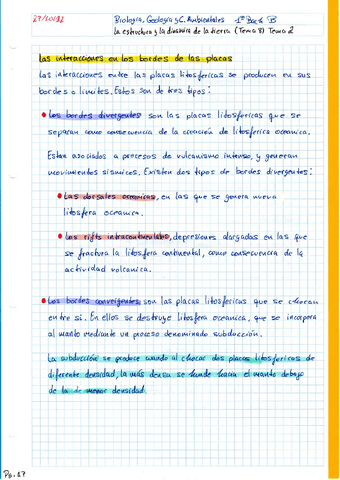 27/10/22
Biología, Geología y C. Ambientales 1º Bach B
La estructura y la dinámica de la tierra (Tema 8) Tema 2
Las interacciones en los bordes de las placas
Las interacciones entre las placas litosfericas se producen en sus
bordes o límites. Estos son de tres tipos:
Los bordes divergentes son las placas litosfericas que se
separan como consecuencia de la creación de litosferica oceanica.
Estan asociados a procesos de vulcanismo intenso, y generan
movimientos sísmicos. Existen dos tipos de bordes divergentes:
Las dorsales oceanicas, en las que se genera nueva
litosfera oceanica.
Los rifts intracontinentales, depresiones alargadas en las que
se fractura la litosfera continental, como consecuencia de la
actividad volcanica.
Los bordes convergentes son las placas litosfericas que se chocan
entre si. En ellos se destruye litosfera oceanica, que se incorpora
al manto mediante un proceso denominado subducción.
La subducción se produce cuando al chocar dos placas litosfericas de
diferente densidad, la más densa se hunde hacia el manto debajo
de la de menor densidad.
Pg. 17